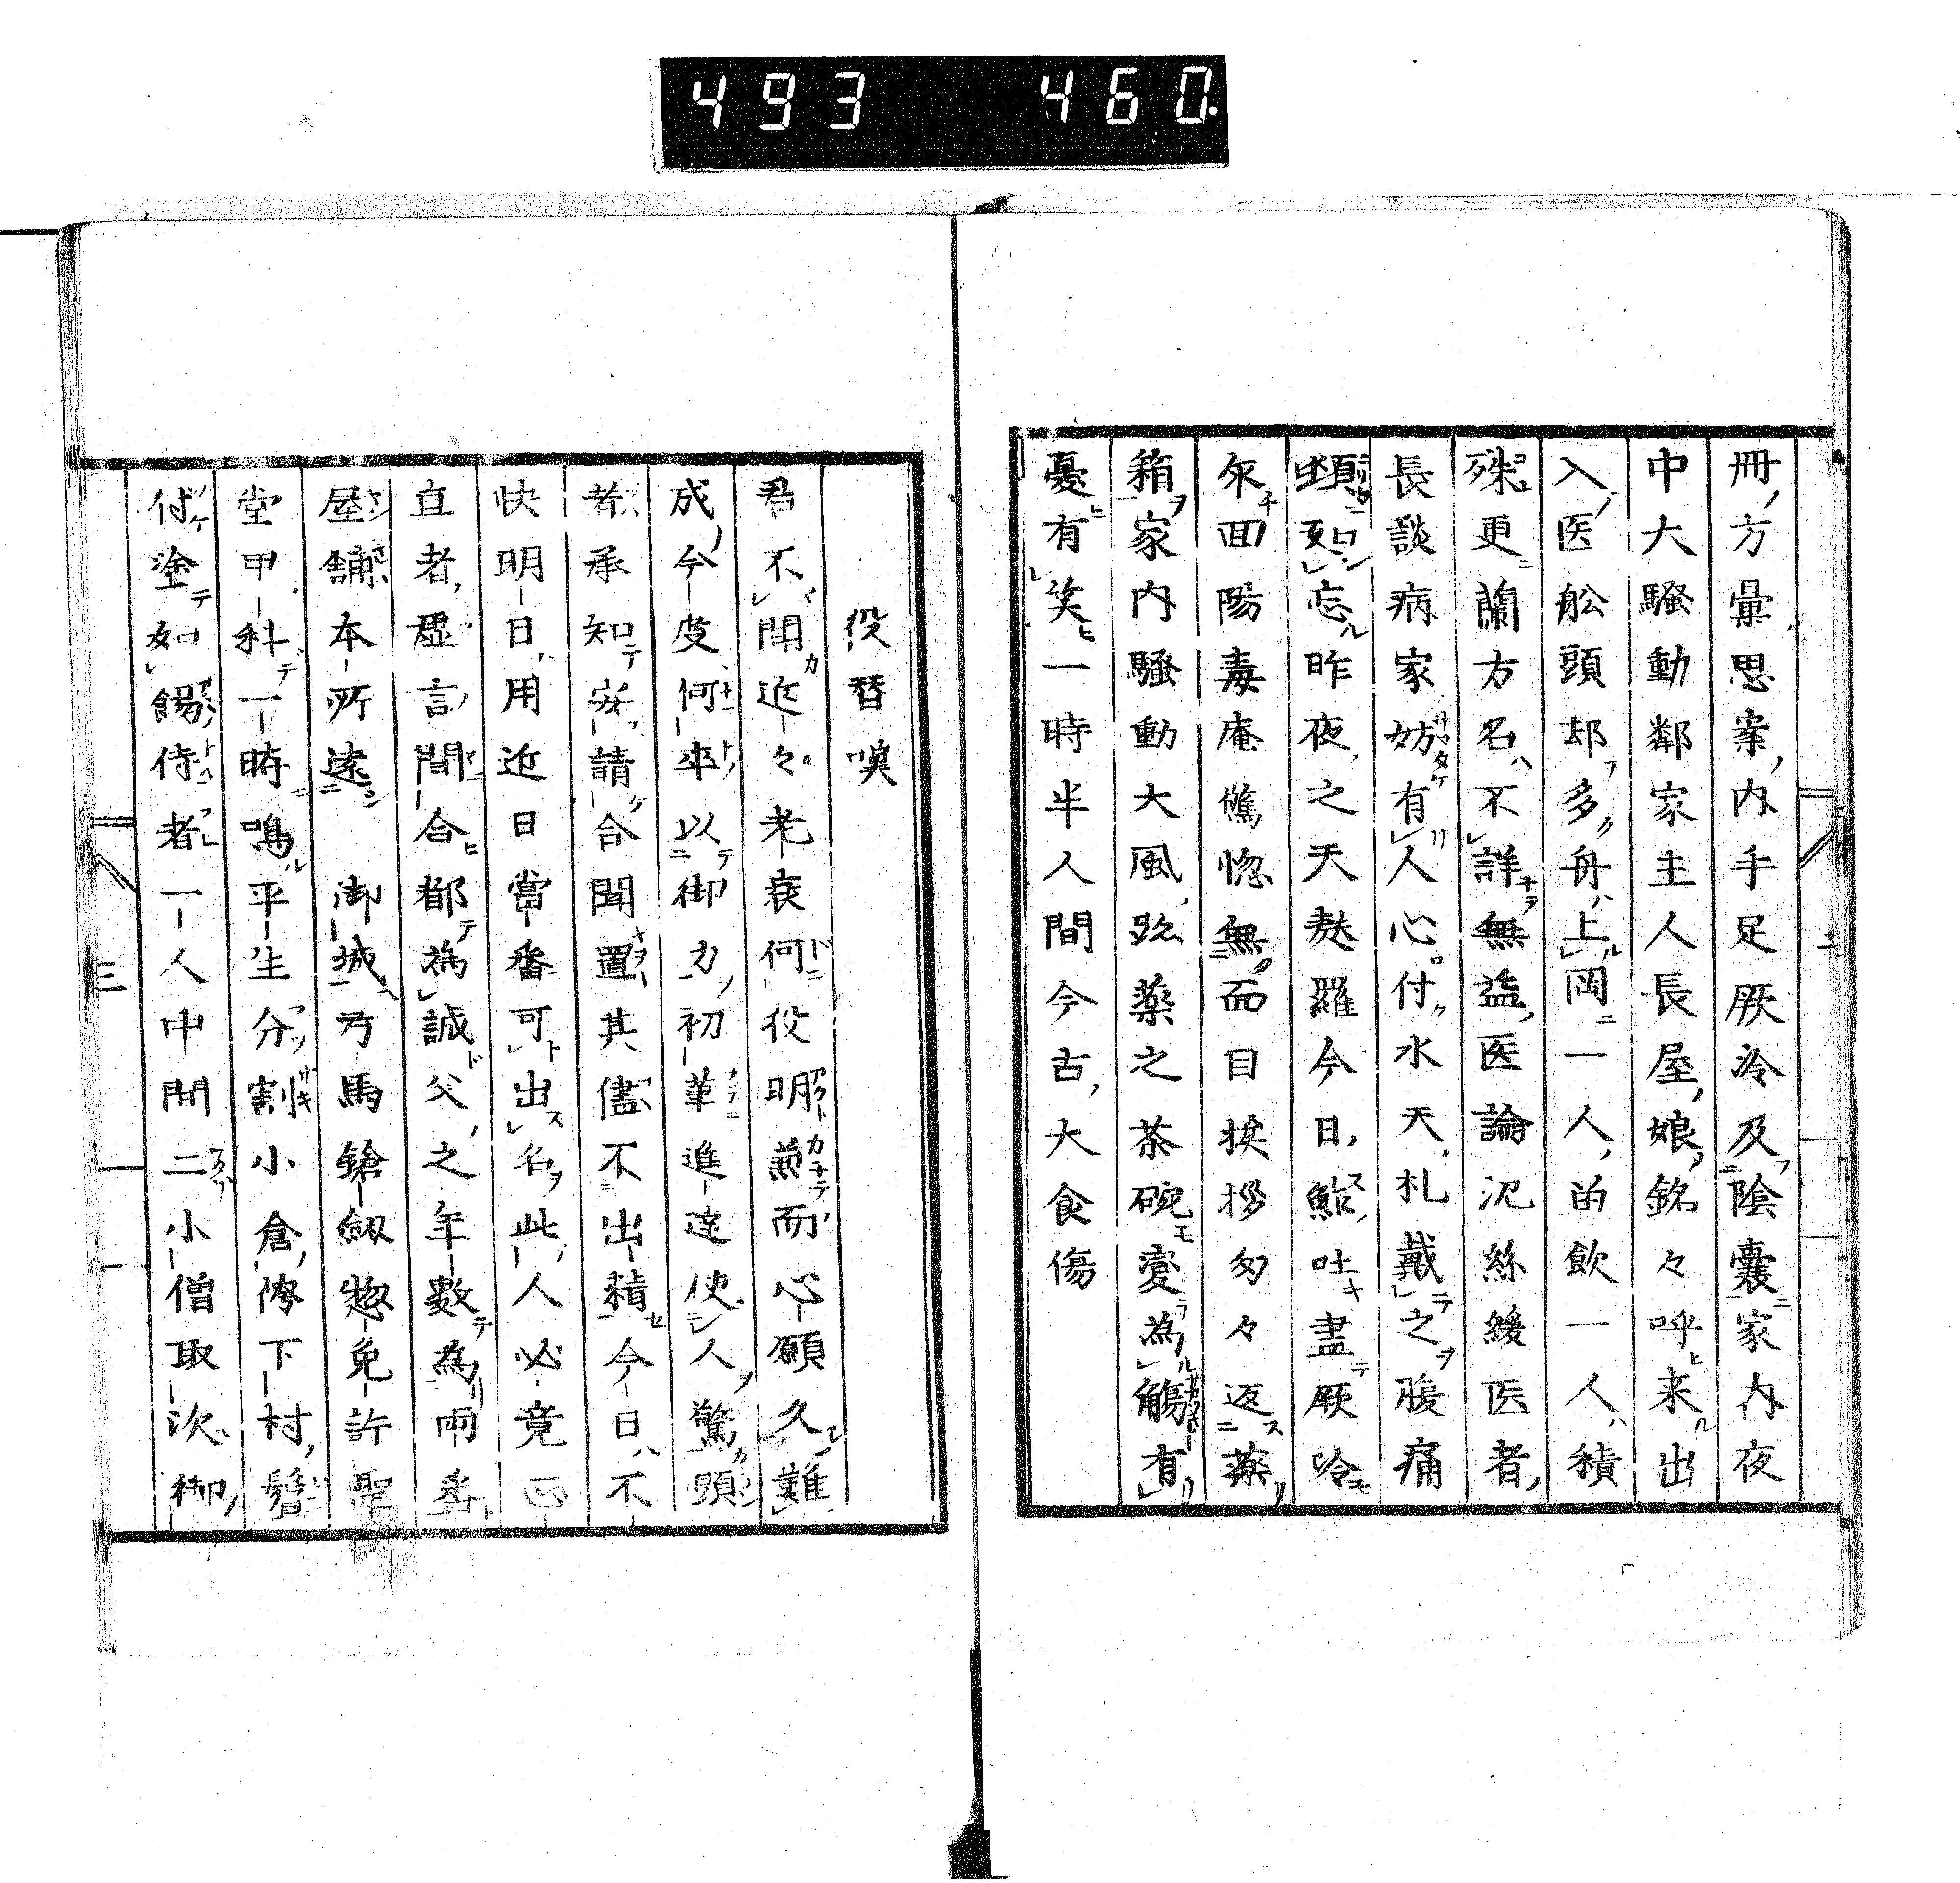 493 460.
冊方彙思案内手足厥冷及陰嚢家内夜
中大騷動鄰家主人長屋娘銘々呼来出
入医舩頭却多舟上岡一人的飲一人積
殊更蘭方名不詳無益医論況絲緩医者
長談病家妨有人心付水天札戴之腹痛
頓如忘昨夜之天麩羅今日鮓吐盡厥冷
尓面陽毒庵憮惚無面目挨拶匆々返薬
箱家内騷動大風跡薬之茶碗変為觴有
憂有笑一時半人間今古大食傷
二
役替嘆
君不聞近々老衰何役明兼而心願久難
成今度何卒以御力初華進達使人驚頭
者承知安請合聞置其儘不出精今日不
快明日用近日當番可出名此人必竟正
直者虚言間合都為誠父之年數為両番
屋舗本所遠 御城乃馬鎗劔惣免許聖
堂甲科一時鳴平生分割小倉袴下村鬢
付塗如餳侍者一人中間二小僧取次御
三